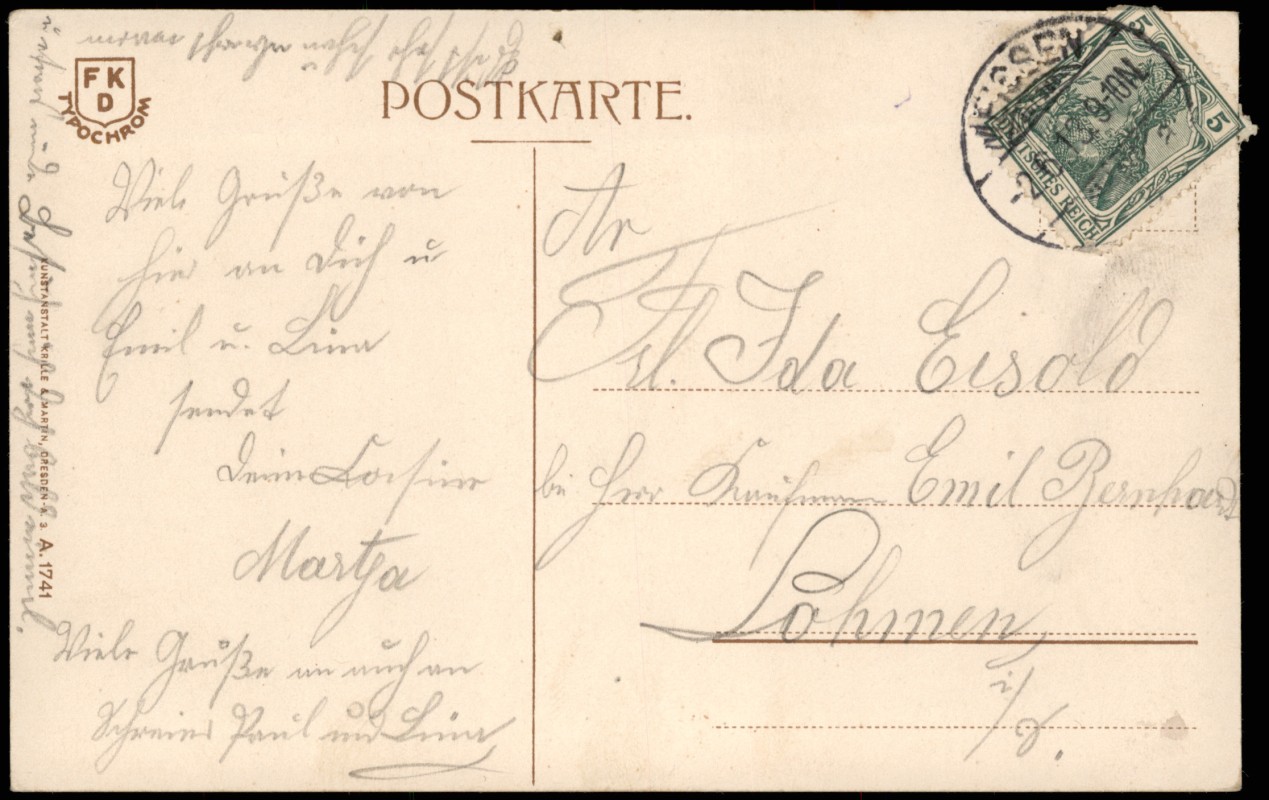 FKD
TYPOCHROM
POSTKARTE.
MEISSEN
9-10N.
DEUTSCHES REICH
5
5
Viele Grüße von
hier an Dich u
Emil u. Lina
sendet
Deine Cousine
Martha
Viele Grüße an auch an
Schreier Paul und Lina
An
Frl. Ida Eisold
bei Herr Kaufmann Emil Bernhardt
Lohmen
i/S.
KUNSTANSTALT KRILLE & MARTIN, DRESDEN-A. 3. A. 1741